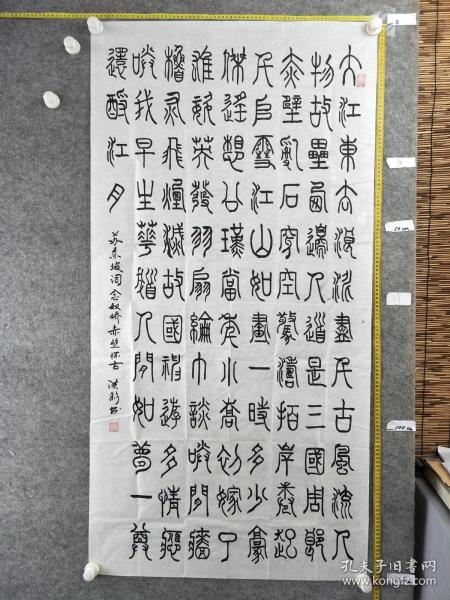 大江東去浪淘盡千古風流人
物故壘西邊人道是三國周郎
赤壁亂石穿空驚濤拍岸卷起
千堆雪江山如畫一時多少豪
傑遙想公瑾當年小喬初嫁了
雄姿英發羽扇綸巾談笑間檣
櫓灰飛煙滅故國神遊多情應
笑我早生華髮人間如夢一尊
還酹江月
苏東坡词念奴娇赤壁怀古
0
50cm
100cm
孔夫子旧书网
kongfz.com